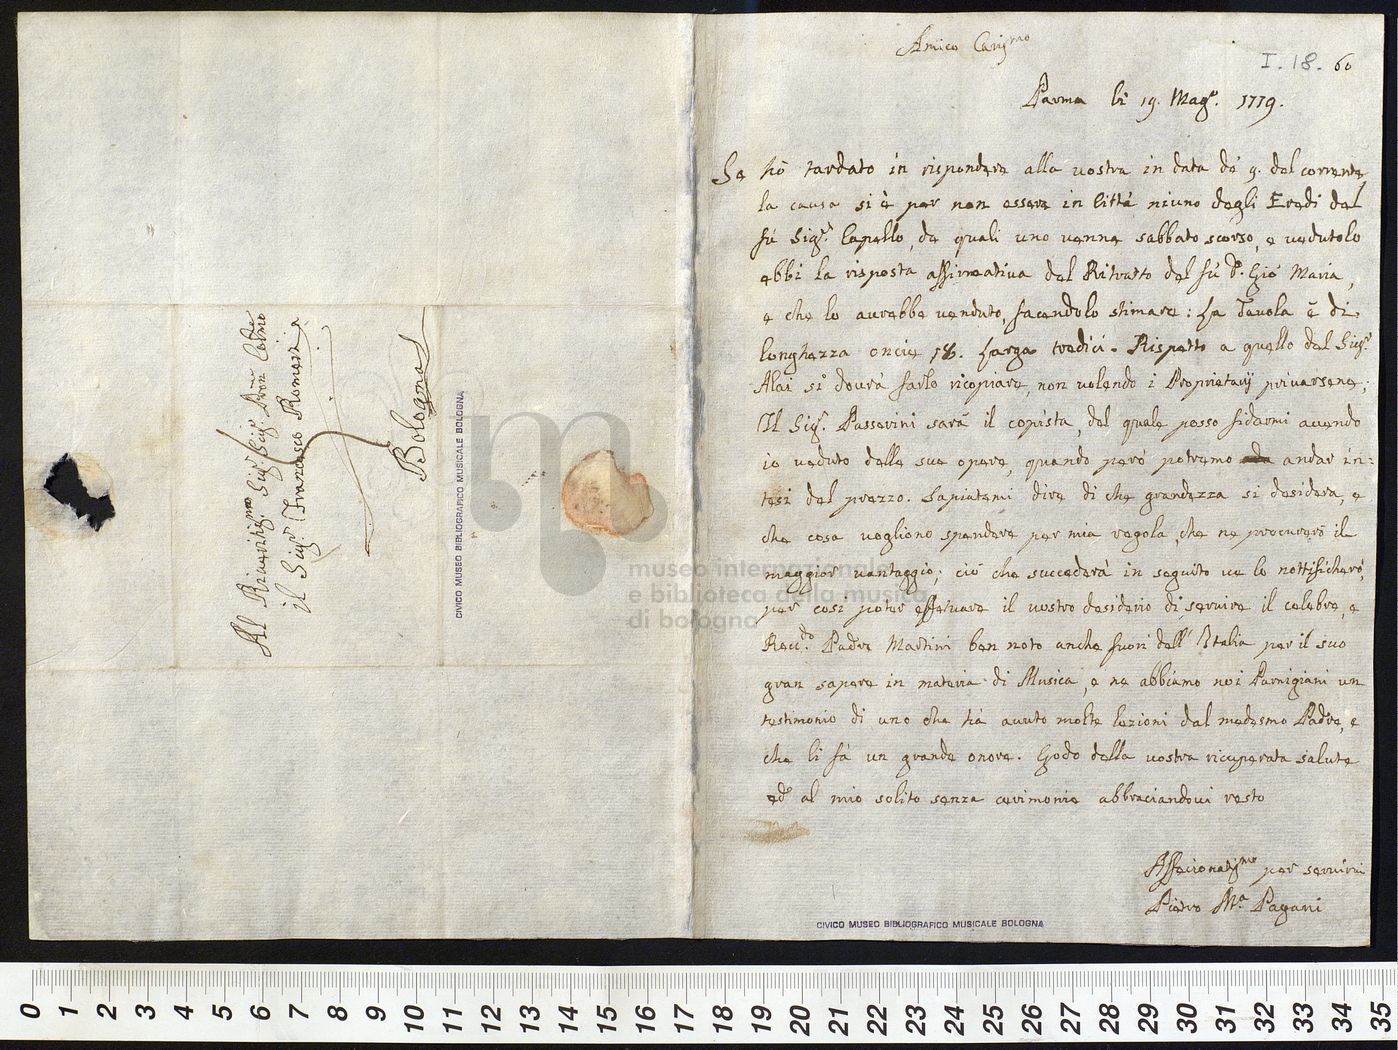 Al Riveritis.mo Sig.r Sig.r Pron Colmo
il Sig.r Francesco Romei
Bologna
CIVICO MUSEO BIBLIOGRAFICO MUSICALE BOLOGNA
Amico Caris.mo
I. 18. 60
Parma li 19. Mag.o 1779.
Se hò tardato in rispondere alla vostra in data dé 9. del corrente
la causa si è per non essere in Città niuno degli Eredi del
fú Sig.r Capello, de quali uno venne sabbato scorso, e vedutolo
ebbi la risposta affirmativa del Ritratto del fú P. Gio Maria,
e che lo avrebbe venduto, facendolo stimare: La Tavola è di
lunghezza oncie 18. Larga tredici. Rispetto a quello del Sig.r
Alai si dovrà farlo ricopiare, non volendo i Proprietarij privarsene;
Il Sig.r Passerini sarà il copista, del quale posso fidarmi avendo
io veduto delle sue opere, quando però potremo andar in:
tesi del prezzo. Sapiatemi dire di che grandezza si desidera, e
che cosa vogliono spendere per mia regola, che ne procurerò il
maggior vantaggio; ciò che succederà in seguito ve lo nottificherò,
per così poter effetuare il vostro desiderio di servire il celebre, e
Rev.do Padre Martini ben noto anche fuori dell' Italia per il suo
gran sapere in materia di Musica, e ne abbiamo noi Parmigiani un
testimonio di uno che hà avuto molte lezioni dal medesmo Padre, e
che li fà un grande onore. Godo della vostra ricuperata salute
ed al mio solito senza cerimonie abbraciandovi resto
Affecionatis.mo per servirvi
Pietro M.a Pagani
CIVICO MUSEO BIBLIOGRAFICO MUSICALE BOLOGNA
museo internazionale
e biblioteca della musica
di bologna
0 1 2 3 4 5 6 7 8 9 10 11 12 13 14 15 16 17 18 19 20 21 22 23 24 25 26 27 28 29 30 31 32 33 34 35